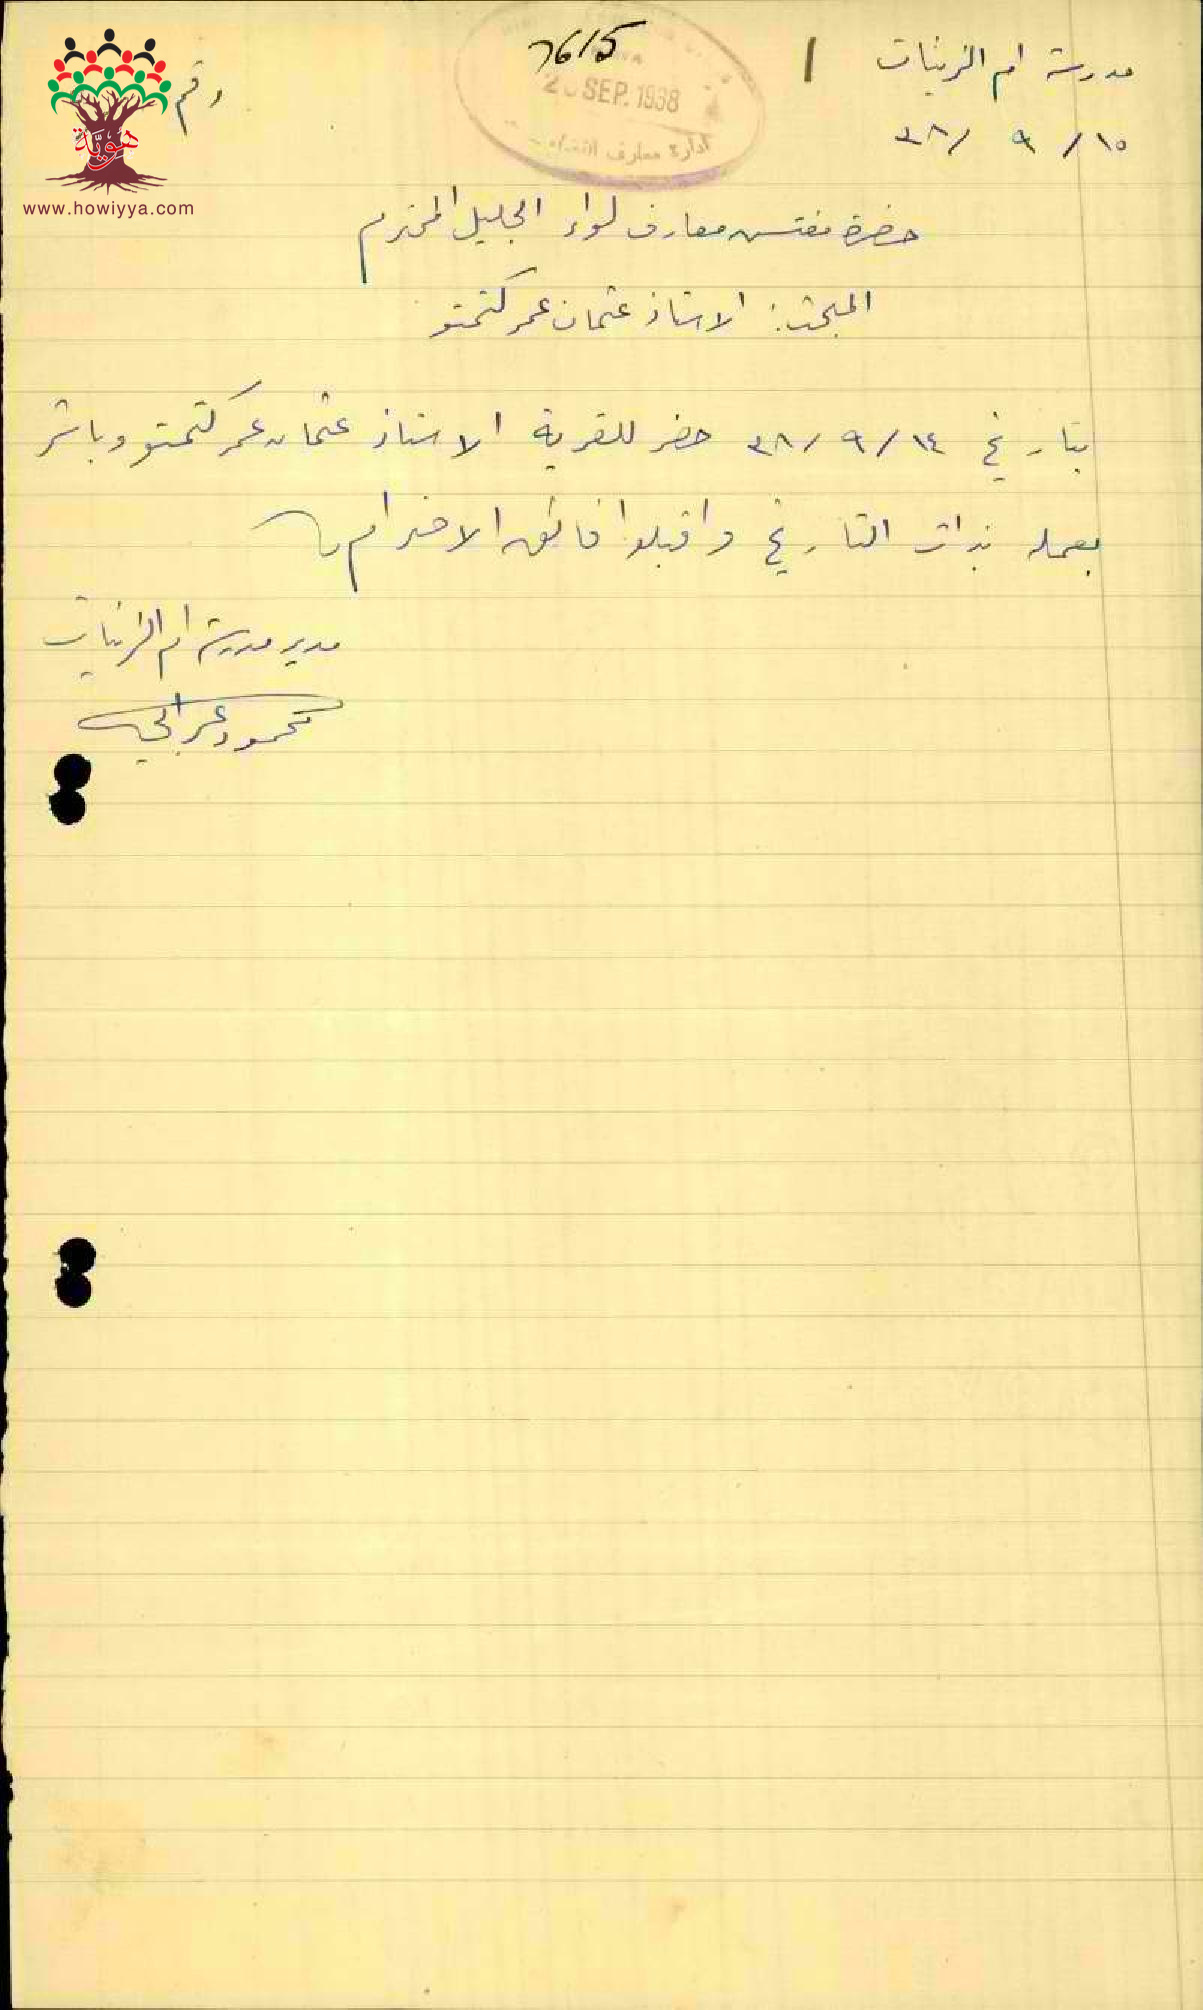 مدرسة ام الزينات
١٥/ ٩ /٣٨
رقم
7615
2 SEP. 1938
ادارة معارف
هوية
www.howiyya.com
حضرة مفتش معارف لواء الجليل المحترم
المبحث: الاستاذ عثمان عمر كتمتو
بتاريخ ١٤/ ٩ /٣٨ حضر للقرية الاستاذ عثمان عمر كتمتو وباشر
بعمله بذات التاريخ واقبلوا فائق الاحترام
مدير مدرسة ام الزينات
محمود عرابي